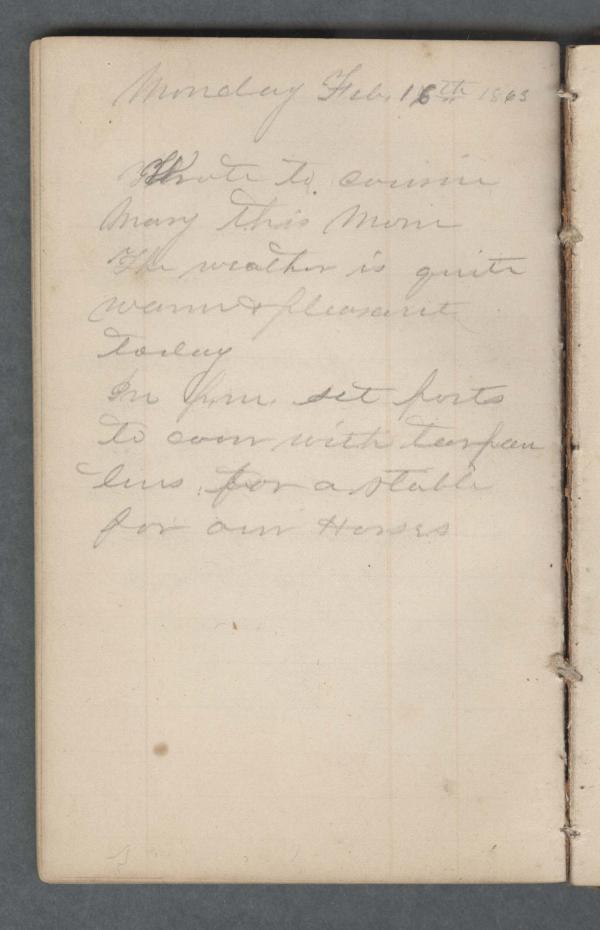 Monday Feb. 16th 1863
Wrote to cousin
Mary this Morn
The weather is quite
warm & pleasant
today
In p.m. set posts
to cover with tarpau
lins for a stable
for our Horses